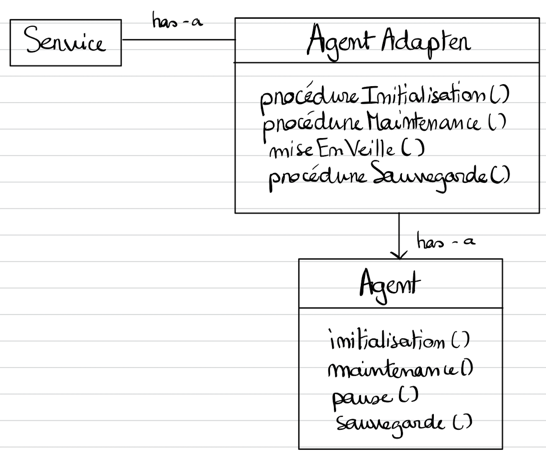 has-a
Service
Agent Adapter
procédureInitialisation()
procédureMaintenance()
miseEnVeille()
procédureSauvegarde()
has-a
Agent
initialisation()
maintenance()
pause()
sauvegarde()